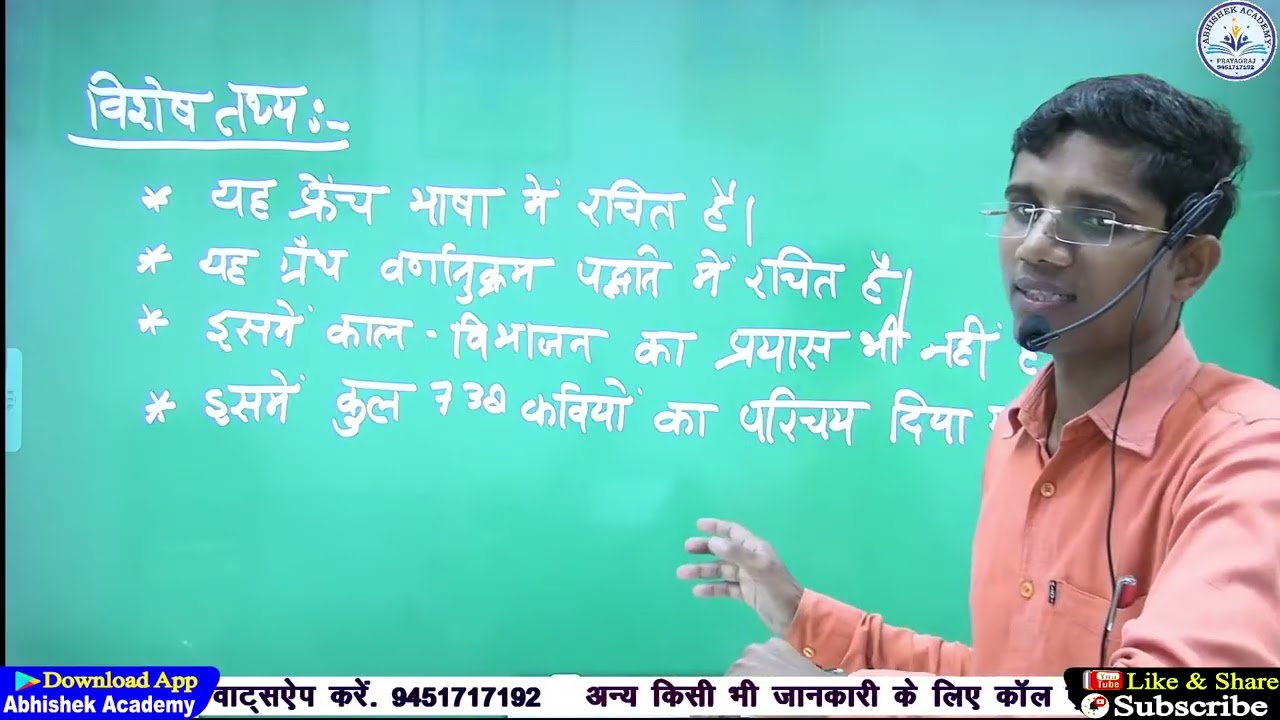 ABHISHEK ACADEMY
PRAYAGRAJ
9451717192
विशेष तथ्य :-
* यह फ्रेंच भाषा में रचित है।
* यह ग्रंथ वर्णानुक्रम पद्धति में रचित है।
* इसमें काल - विभाजन का प्रयास भी नहीं
* इसमें कुल 738 कवियों का परिचय दिया
Download App
Abhishek Academy
वाट्सऐप करें. 9451717192 अन्य किसी भी जानकारी के लिए कॉल
You Tube Like & Share
Subscribe